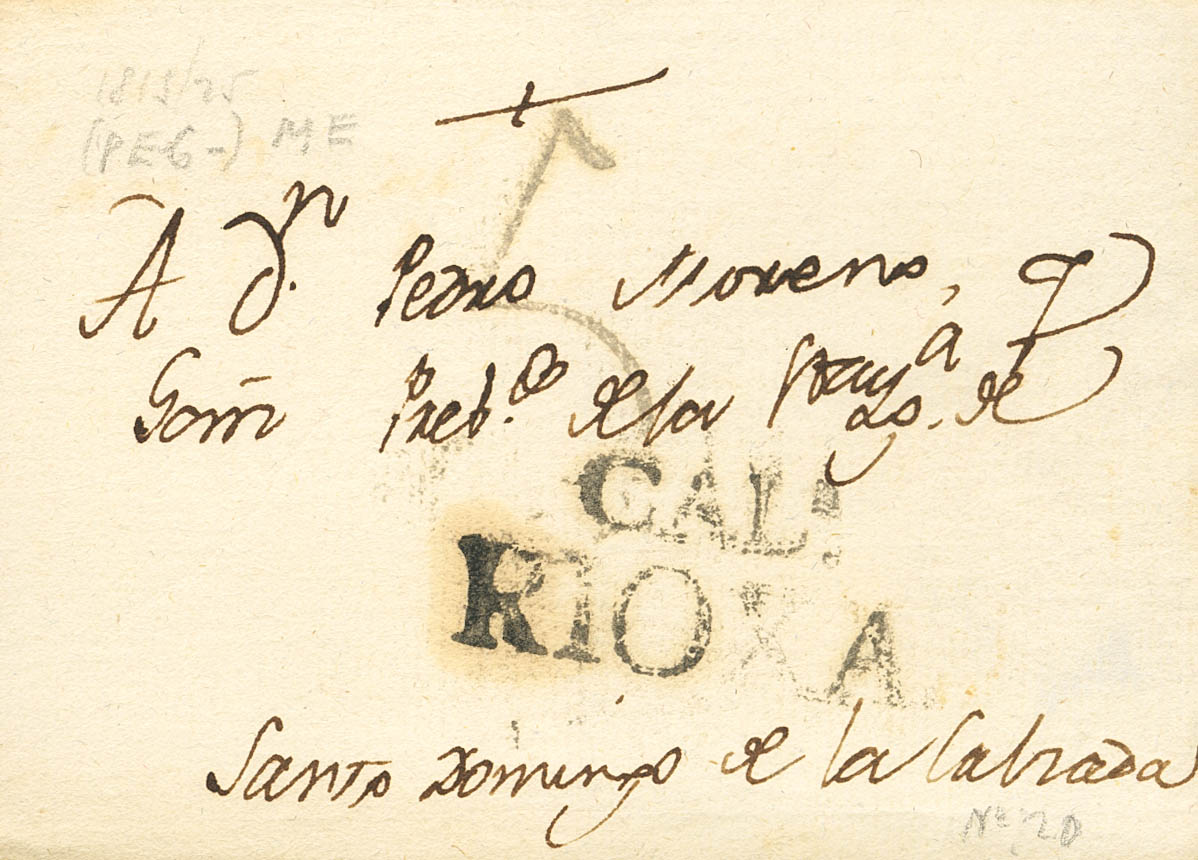 1819/25
(PE6-) ME
A Dn. Pedro Moreno, y
Goñi Preb.do de la Stay.a
Yg. de
CAL.
RIOXA.
Santo Domingo de la Calzada
Nº 20